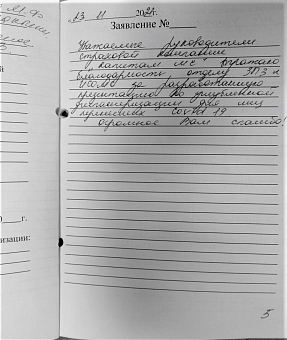 23 11 2021г.
Заявление №
Уважаемые руководители
страховой компании
"Капитал МС" выражаю
благодарность отделу ЗПЗ и
за разработанную
презентацию по углубленной
диспансеризации для лиц
перенесших COVID 19
Огромное Вам спасибо!
г.
низации:
5